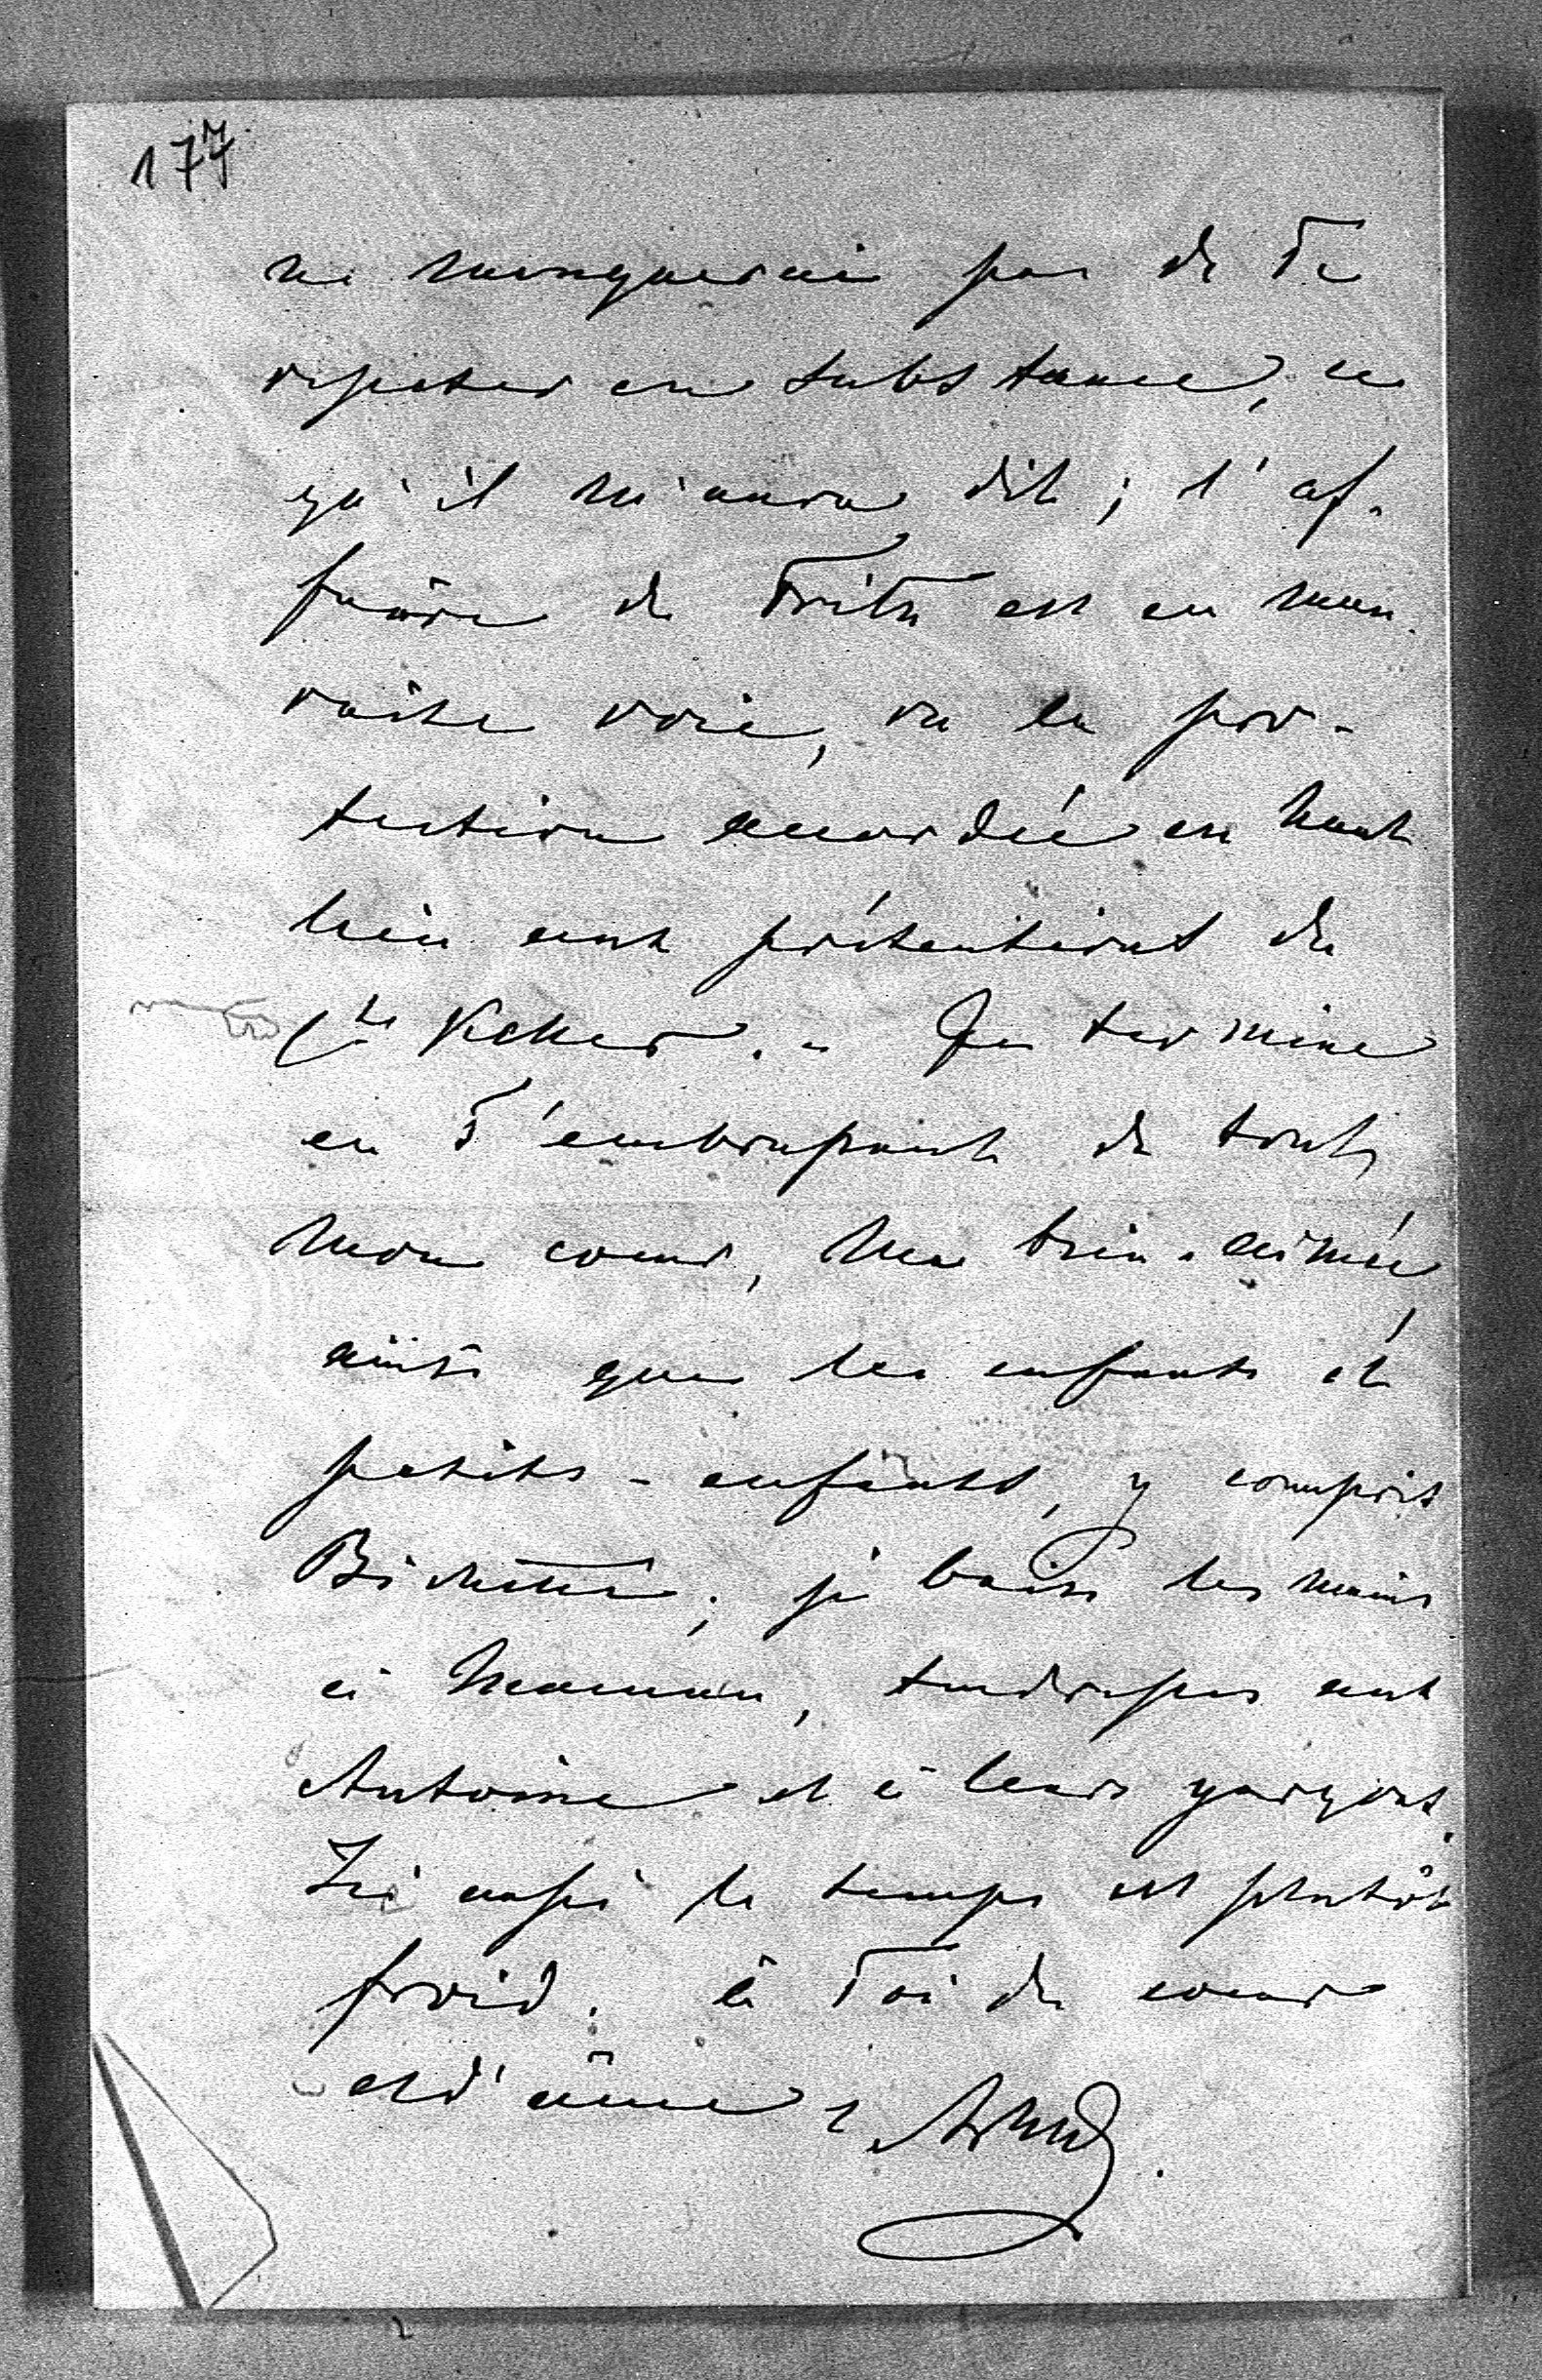 177
ne manquerai pas de Te
repeter en substance, ce
qu'il m'aura dit; l'af-
faire de Fritz est en mau-
vaise voie, vu la pro-
tection accordée en haut
lieu aux prétentions du
Cte Keller. - Je termine
en T'embrassant de tout
mon coeur, ma bien-aimée,
ainsi que les enfants et
petits-enfants, y compris
je baise les mains
à Maman, tendresses aux
Antoine et à leurs garçons.
Ici aussi le temps est plutôt
froid. à Toi de coeur
et d'âme,